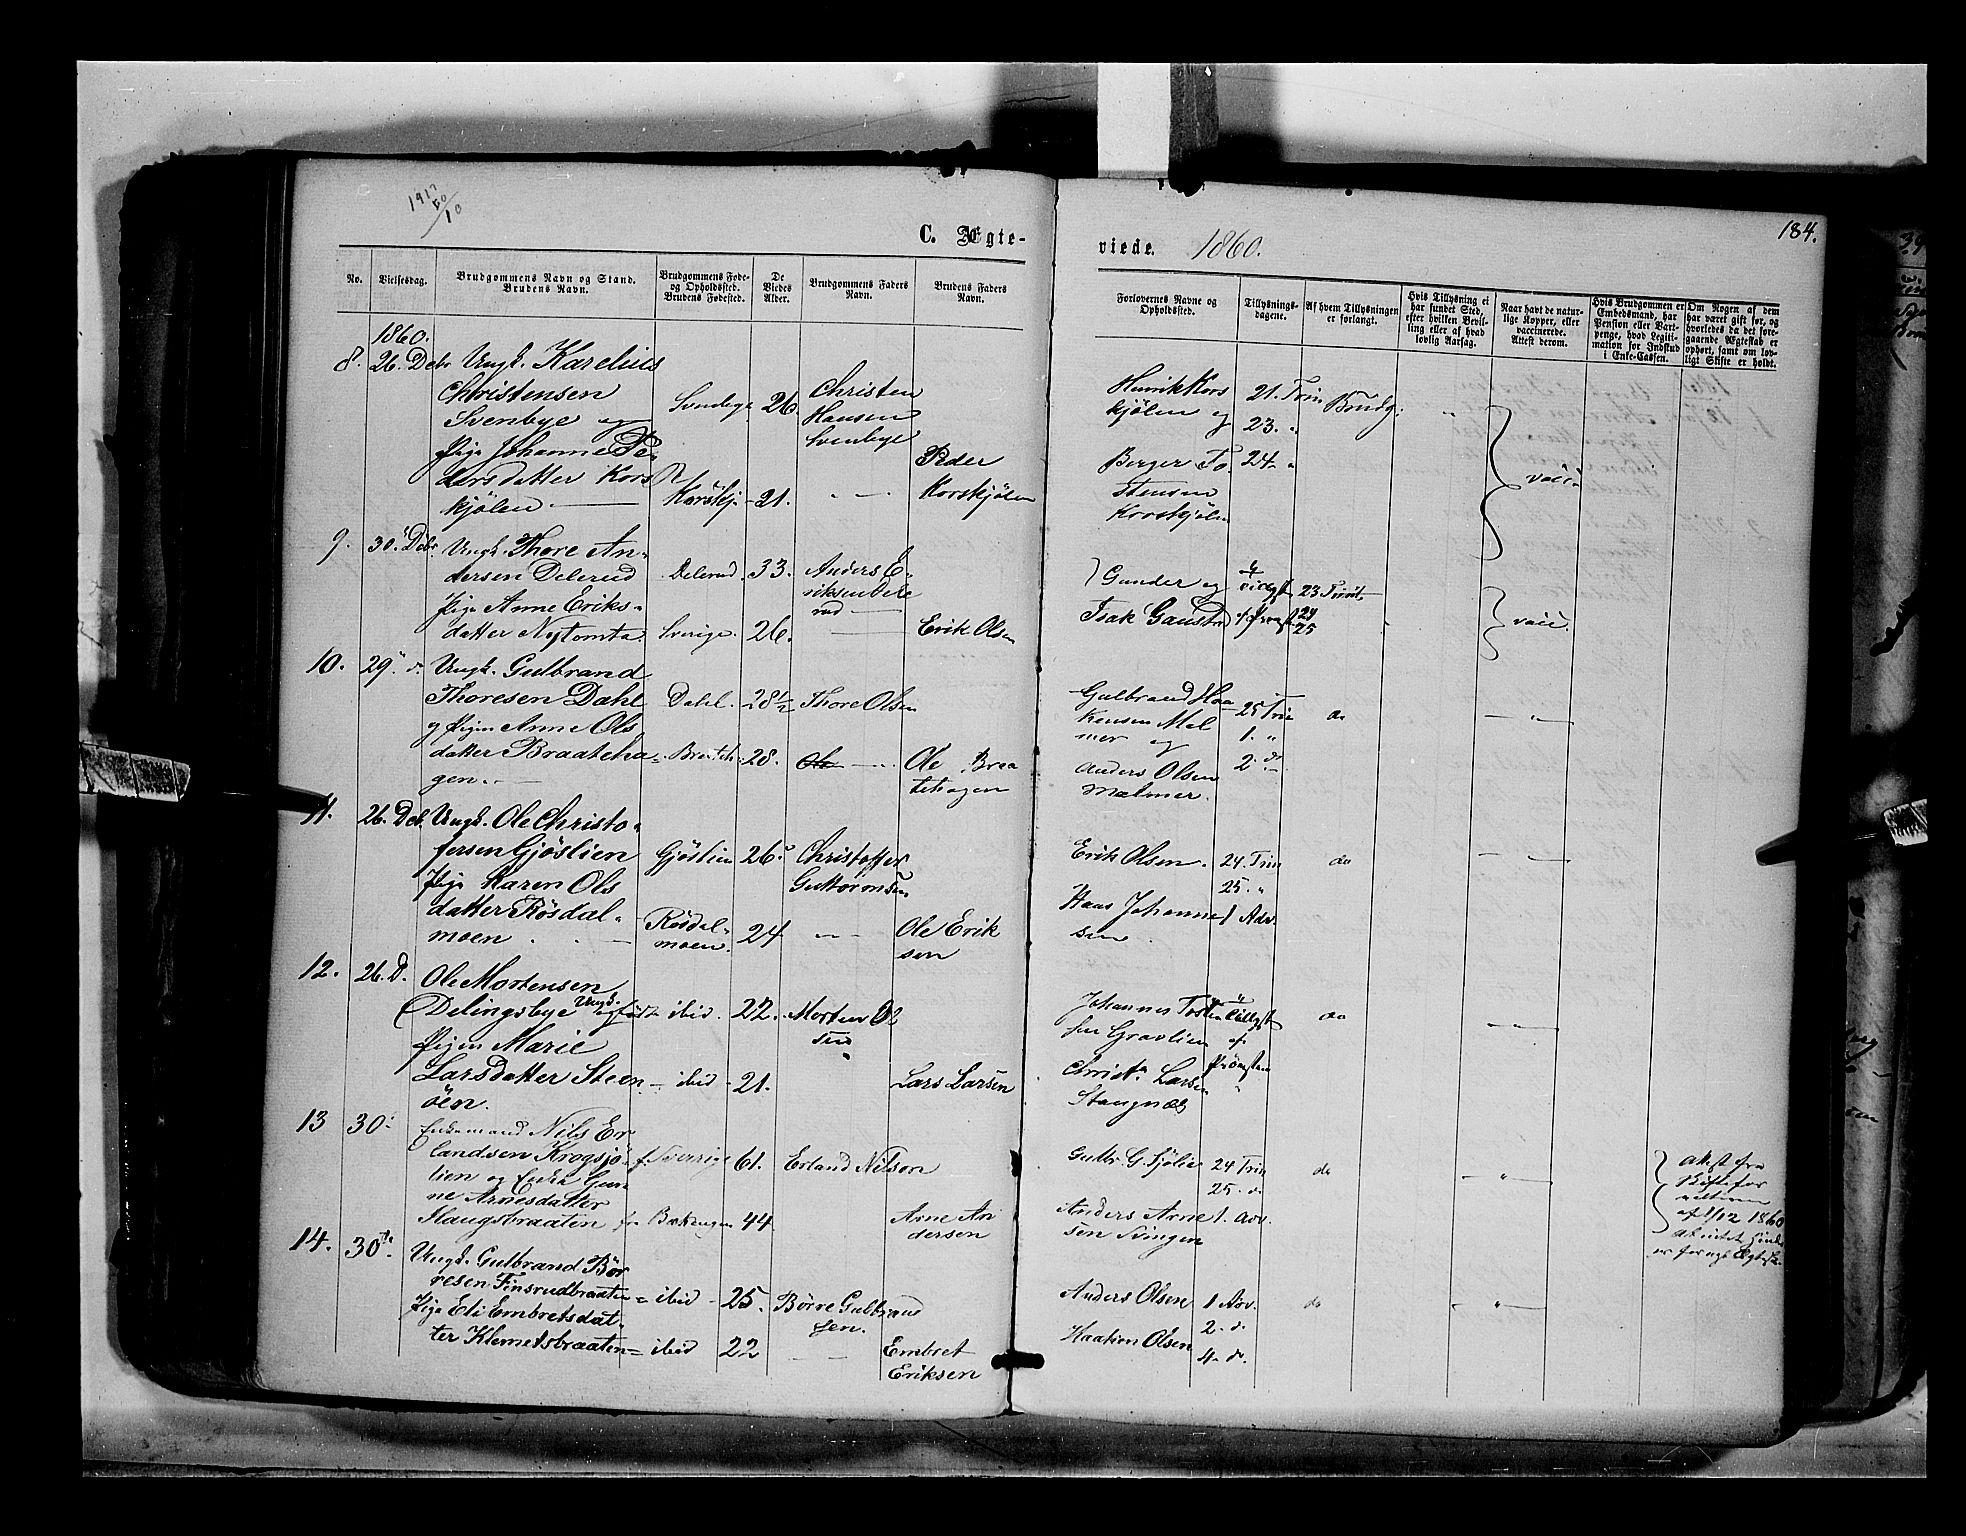 184.
C. Ægte-
viede. 1860.
No.
Vielsesdag.
Brudgommens Navn og Stand.
Brudens Navn.
Brudgommens Føde-
og Opholdssted.
Brudens Fødested.
De
Viedes
Alder.
Brudgommens Faders
Navn.
Brudens Faders
Navn.
Forlovernes Navne og
Opholdssted.
Tillysnings-
dagene.
Af hvem Tillysningen
er forlangt.
Hvis Tillysning ei
har fundet Sted,
efter hvilken Bevil-
ling eller af hvad
lovlig Aarsag.
Naar havt de natur-
lige Kopper, eller
vaccinerede.
Attest derom.
Hvis Brudgommen er
Embedsmand, har
Pension eller Vart-
penge, hvad Legiti-
mation for Indskud
i Enke-Cassen.
Om Nogen af dem
har været gift før, og
hvorledes da det fore-
gaaende Ægteskab er
ophørt, samt om lov-
ligt Skifte er holdt.
1860.
8. 26. Debr Ungk. Karelius
Christensen
Svenbye og
Pige Johanne Pe-
dersdatter Kors
kjølen
Svenbye 26 Christen
Hansen
Svenbye
Korskj. 21. Peder
Korskjølen
Henrik Kors
kjølen og
Berger To
stensen
Korskjølen
21. Trin
23. "
24 "
Brudg.
vacc.
9. 30. Debr. Ungk. Thore An-
dersen Delerud
Pige Anne Eriks-
datter Nytomta
Delerud 33. Anders E-
riksen Dele
rud
Sverige. 26. Erik Olsen
Gunder og
Isak Gaustad
23 Trinit
24
25
vacc.
10. 29. d. Ungk. Gulbrand
Thoresen Dahl
og Pigen Anne Ols
datter Braateha-
gen.
Dahl. 28 1/2 Thore Olsen
Braateh 28. Ole Braa
tehagen
Gulbrand Haa
kensen Mal
mer og
Anders Olsen
Malmer.
25 Trin
1. "
2. d
do
11. 26. Deb. Ungk. Ole Christo-
fersen Gjøslien
Pige Karen Ols
datter Røsdal-
moen
Gjøslien 26 Christoffer
Guttormsen
Røsdal-
moen. 24 Ole Erik
sen
Erik Olsen.
Hans Johanne
sen
24. Trin
25. "
1 Adv.
do
12. 26. D. Ole Mortensen
Delingsbye Ungk. født
Pigen Marie
Larsdatter Steen
øen.
ibid. 22. Morten Ol
sen
ibid 21. Lars Larsen
Johannes Tosten
sen Gravlien
Christn Larsen
Stangnæs
do
13 30. Enkemand Nils Er
landsen Krogsjø-
lien og Enke Gun
ne Arnesdatter
Haugsbraaten
f. Sverrige 61. Erland Nilson
44 Arne An
dersen
Gulbr. G. Sjølie
Anders Arne
sen Svingen
24 Trin
25. d.
1. Adv.
do
14. 30te. Ungk. Gulbrand Bør
resen Finsrudbraaten
Pige Eli Embretsdat-
ter Klemetsbraaten
ibid 25. Børre Gulbrand
sen.
ibid 22 Embret
Eriksen
Anders Olsen
Haakon Olsen
1 Adv.
2. d.
4. d.
do